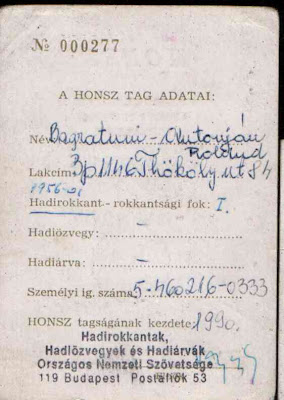 № 000277
A HONSZ TAG ADATAI:
Név: Bagratuni-Antonján
Roland
Lakcím: Bp 1146 Thököly út 84
1956-os
Hadirokkant - rokkantsági fok: I.
Hadiözvegy: -
Hadiárva: -
Személyi ig. száma: 5-460216-0333
HONSZ tagságának kezdete: 1990.
Hadirokkantak,
Hadiözvegyek és Hadiárvák
Országos Nemzeti Szövetsége
119 Budapest Postafiók 53